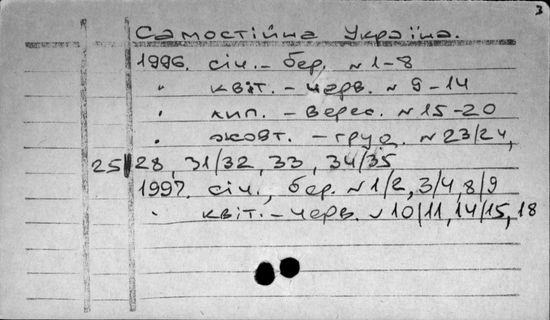 3
Самостійна Україна.
1996. січ. - бер. № 1-8
" квіт. - черв. № 9-14
" лип. - верес. № 15-20
" жовт. - груд. № 23/24,
25 28, 31/32, 33, 34/35
1997. січ., бер. № 1/2, 3/4, 8/9
" квіт. - черв. № 10/11, 14/15, 18